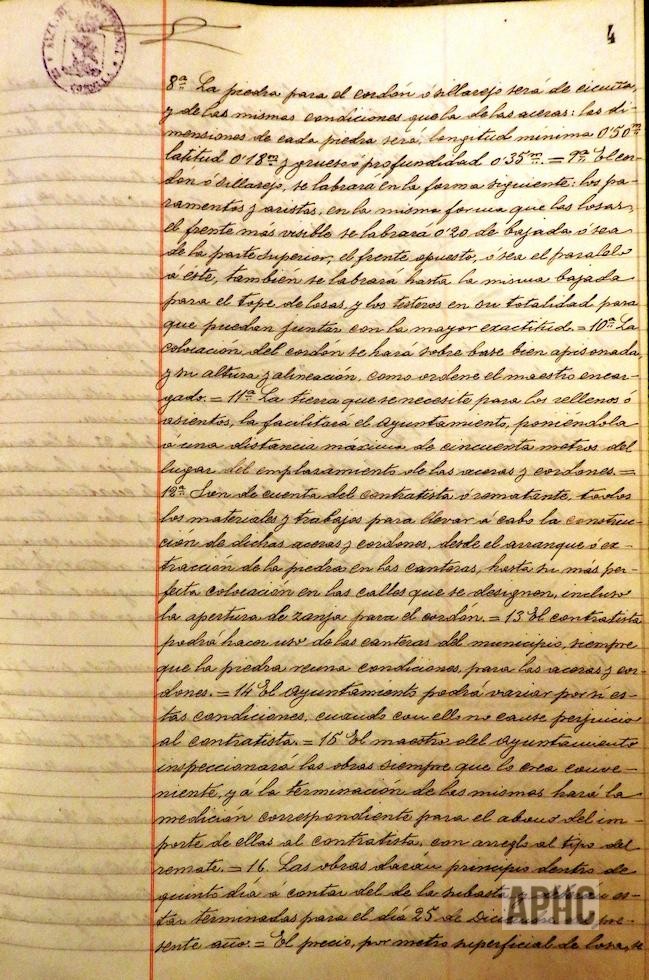 4
8ª La piedra para el cordón ó sillarejo será de
y de las mismas condiciones que la de las aceras: las di-
mensiones de cada piedra será, longitud mínima 0'50m
latitud 0'18m y grueso ó profundidad 0'35m. = 9ª El cor-
dón ó sillarejo, se labrará en la forma siguiente: los pa-
ramentos y aristas, en la misma forma que las losas,
el frente más visible se labrará 0'20 de bajada ó sea
de la parte superior, el frente opuesto, ó sea el paralelo
á éste, también se labrará hasta la misma bajada
para el tope de losas, y los testeros en su totalidad para
que puedan juntar con la mayor exactitud. = 10ª La
colocación del cordón se hará sobre base bien apisonada,
y su altura y alineación, como ordene el maestro encar-
gado. = 11ª La tierra que se necesite para los rellenos ó
asientos, la facilitará el Ayuntamiento, poniéndola
á una distancia máxima de cincuenta metros del
lugar del emplazamiento de las aceras y cordones. =
12ª Son de cuenta del contratista ó rematante, todos
los materiales y trabajos para llevar á cabo la construc-
ción de dichas aceras y cordones, desde el arranque ó ex-
tracción de la piedra en las canteras, hasta su más per-
fecta colocación en las calles que se designen, incluso
la apertura de zanja para el cordón. = 13 El contratista
podrá hacer uso de las canteras del municipio, siempre
que la piedra reuna condiciones, para las aceras y cor-
dones. = 14 El Ayuntamiento podrá variar por sí es-
tas condiciones, cuando con ello no cause perjuicio
al contratista. = 15 El maestro del Ayuntamiento
inspeccionará las obras siempre que lo crea conve-
niente, y á la terminación de las mismas hará la
medición correspondiente para el abono del im-
porte de ellas al contratista, con arreglo al tipo del
remate. = 16. Las obras darán principio dentro de
quinto día á contar del de la subasta es-
tar terminadas para el día 25 de pre-
sente año. = El precio, por metro superficial de losa, se
APHC